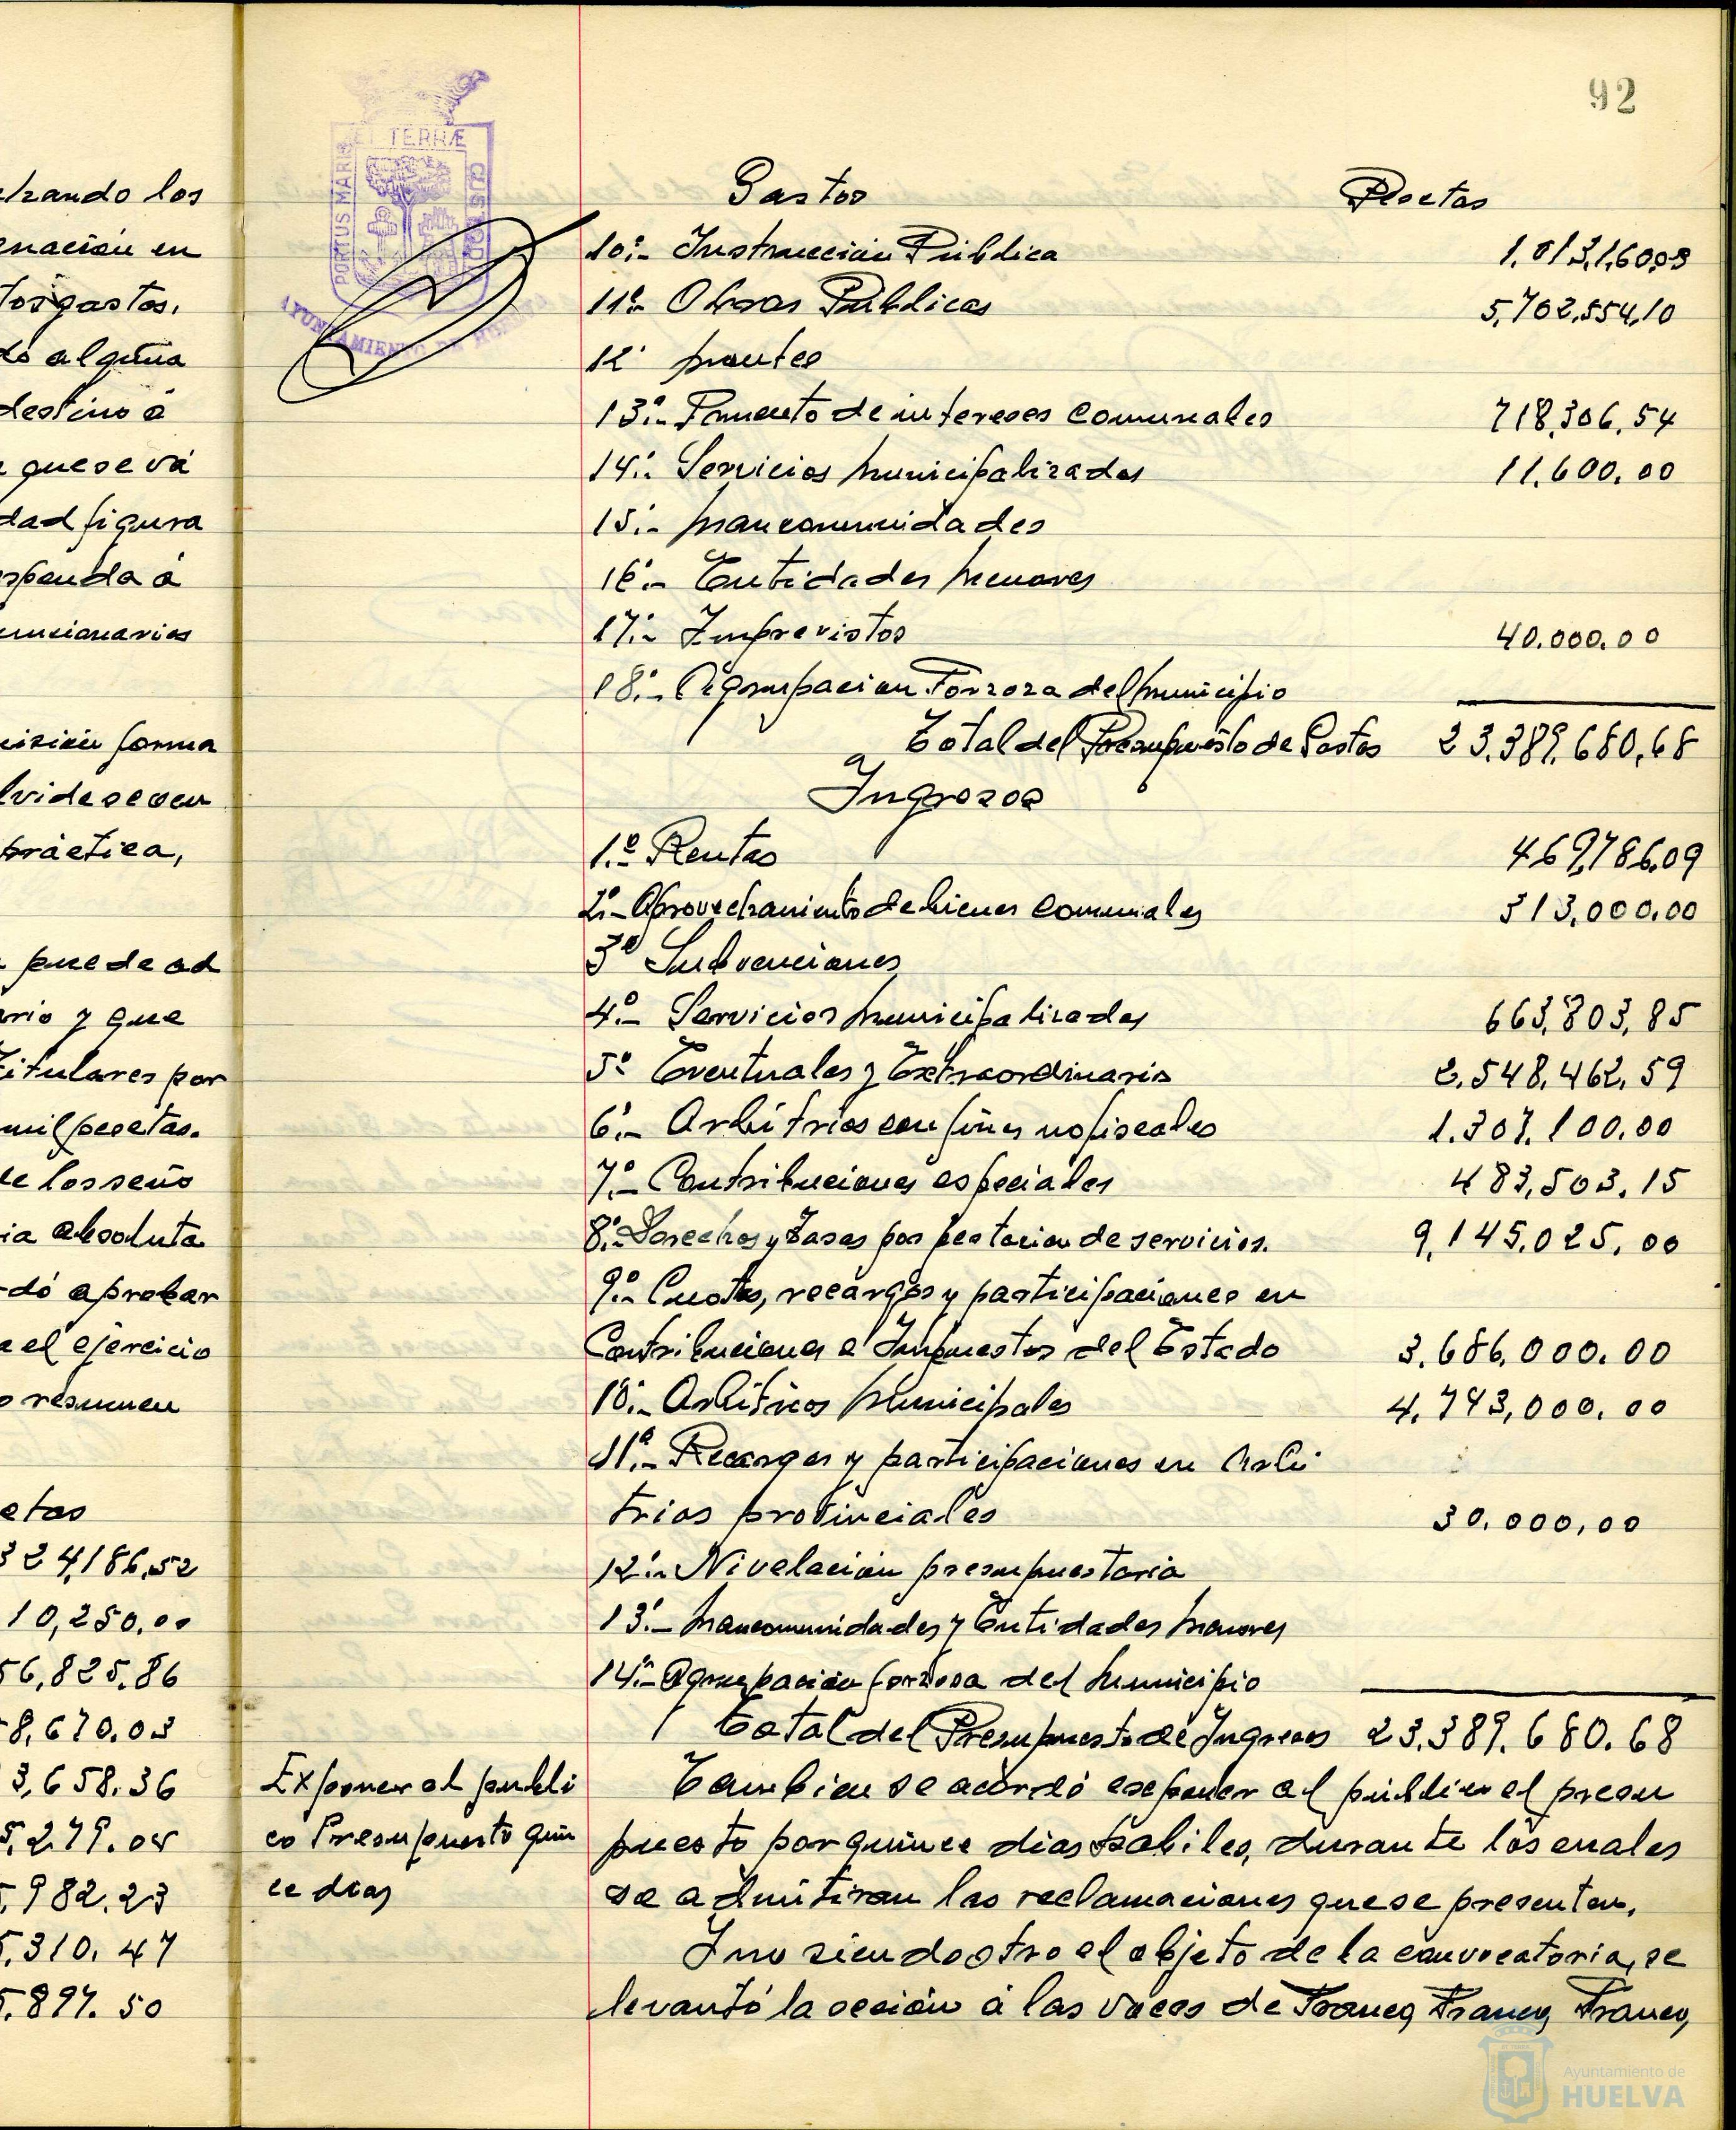 lizando los
enación en
tos gastos.
do alguna
destino á
que se vá
dad figura
sponda á
uncionarios
visión forma
lvide se ven
práctica,
puede ad
ario y que
Titulares por
mil pesetas.
de los seño
ia absoluta
dó aprobar
a el ejercicio
o resumen
etas
324,186,52
10,250.00
56,825.86
8,670.03
3,658.36
5,279.05
5,982.23
5,310.47
5,897.50
92
PORTUS MARIS ET TERRÆ CUSTODIA
AYUNTAMIENTO DE HUELVA
Gastos Pesetas
10º.- Instrucción Pública 1,013,160,03
11º.- Obras Públicas 5,702,554,10
12º montes
13º.- Fomento de intereses Comunales 718,306,54
14º.- Servicios municipalizados 11,600.00
15º.- mancomunidades
16º.- Entidades menores
17º.- Imprevistos 40.000.00
18º.- Agrupacion Forzoza del municipio
Total del Presupuesto de Gastos 23.389,680,68
Ingresos
1.º Rentas 469,786.09
2º.- Aprovechamiento de bienes Comunales 313,000.00
3º Subvenciones
4º.- Servicios municipalizados 663,803,85
5º Eventuales y Extraordinarios 2,548,462,59
6º.- Arbitrios con fines no fiscales 1.307,100.00
7º.- Contribuciones especiales 483,503.15
8º.- Derechos y Tasas por pestacion de servicios. 9,145,025,00
9º.- Cuotas, recargos y participaciones en
Contribuciones é Impuestos del Estado 3,686,000.00
10º.- Arbitrios Municipales 4,743,000.00
11º.- Recargos y participaciones en Arbi
trios provinciales 30.000,00
12º.- Nivelación presupuestaria
13º.- mancomunidades y Entidades menores
14º.- Agrupación forzosa del municipio
Total del Presupuesto de Ingresos 23.389.680.68
Exponer al públi
co Presupuesto quin
ce dias
Tambien se acordó exponer al público el presu
puesto por quince dias habiles, durante los cuales
se admitiran las reclamaciones que se presenten.
Y no siendo otro el objeto de la convocatoria, se
levantó la sesión á las voces de Franco, Franco, Franco,
Ayuntamiento de
HUELVA